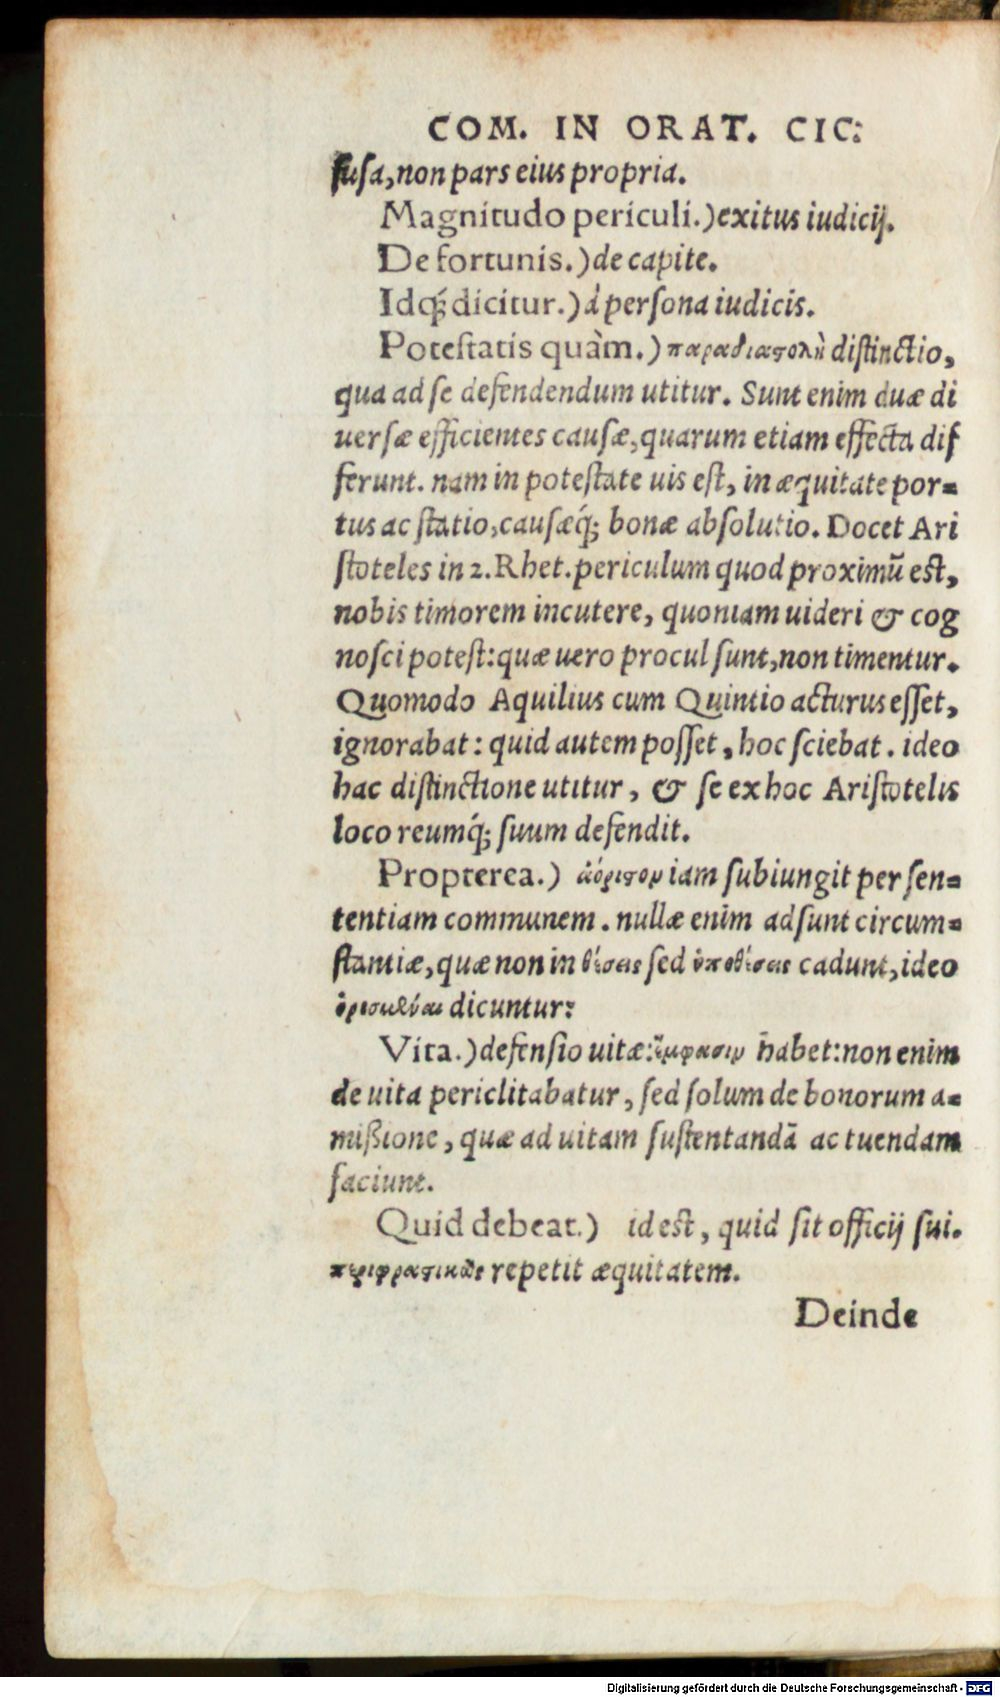 COM. IN ORAT. CIC:
fusa, non pars eius propria.
Magnitudo periculi.) exitus iudicij.
De fortunis.) de capite.
Idq́; dicitur.) à persona iudicis.
Potestatis quàm.) παραδιαστολὴ distinctio,
qua ad se defendendum utitur. Sunt enim duæ di
uersæ efficientes causæ, quarum etiam effecta dif
ferunt. nam in potestate uis est, in æquitate por=
tus ac statio, causæq́; bonæ absolutio. Docet Ari
stoteles in 2. Rhet. periculum quod proximũ est,
nobis timorem incutere, quoniam uideri & cog
nosci potest: quæ uero procul sunt, non timentur.
Quomodo Aquilius cum Quintio acturus esset,
ignorabat: quid autem posset, hoc sciebat. ideo
hac distinctione utitur, & se ex hoc Aristotelis
loco reumq́; suum defendit.
Propterea.) ἀόριστον iam subiungit per sen=
tentiam communem. nullæ enim adsunt circum=
stantiæ, quæ non in θέσεις sed ὑποθέσεις cadunt, ideo
dicuntur:
Vita.) defensio uitæ: ἔμφασιν habet: non enim
de uita periclitabatur, sed solum de bonorum a=
mißione, quæ ad uitam sustentandã ac tuendam
faciunt.
Quid debeat.) id est, quid sit officij sui.
περιφραστικῶς repetit æquitatem.
Deinde
Digitalisierung gefördert durch die Deutsche Forschungsgemeinschaft - DFG